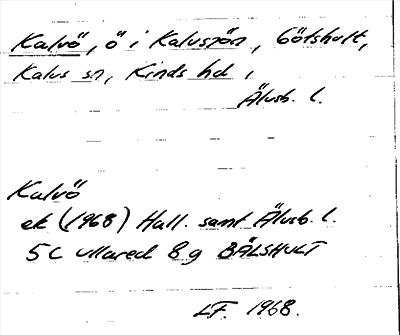 Kalvö, ö i Kalvsjön, Götshult,
Kalvs sn, Kinds hd,
Älvsb. l.
Kalvö
ek (1968) Hall. samt Älvsb. l.
5C Ullared 8g BÄLSHULT
LF. 1968.